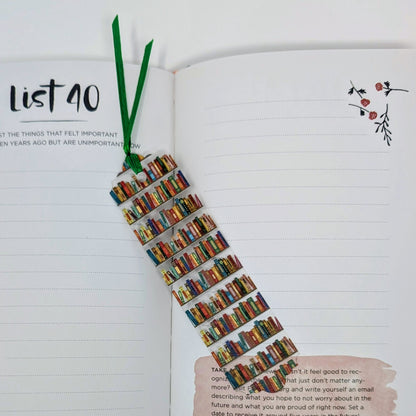 List 40
ST THE THINGS THAT FELT IMPORTANT
EN YEARS AGO BUT ARE UNIMPORTANT NOW
TAKE n't it feel good to rec-
ogni that just don't matter any-
more? Visit and write yourself an email
describing what you hope to not worry about in the
future and what you are proud of right now. Set a
date to receive it around five years in the future!